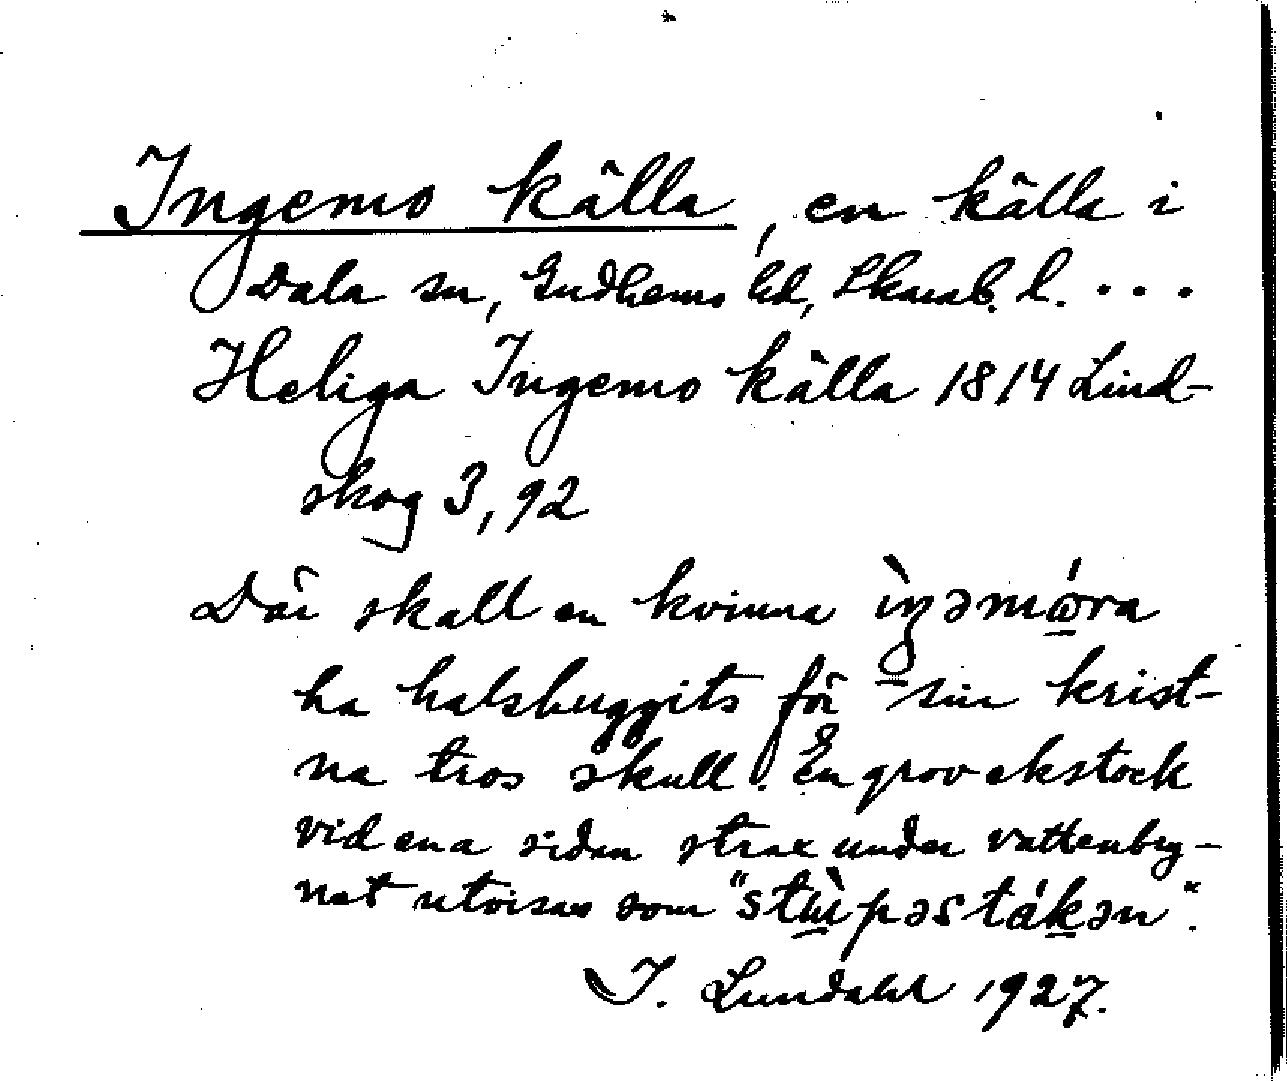 Ingemo källa, en källa i
Dala sn, Gudhems hd, Skarab. l. ...
Heliga Ingemo källa 1814 Lind-
skog 3, 92
Där skall en kvinna ìŋəmóra
ha halshuggits för sin krist-
na tros skull. En grov ekstock
vid ena sidan strax under vattenbry-
net utvisas som "stɯ̀pəstákən".
I. Lundahl 1927.